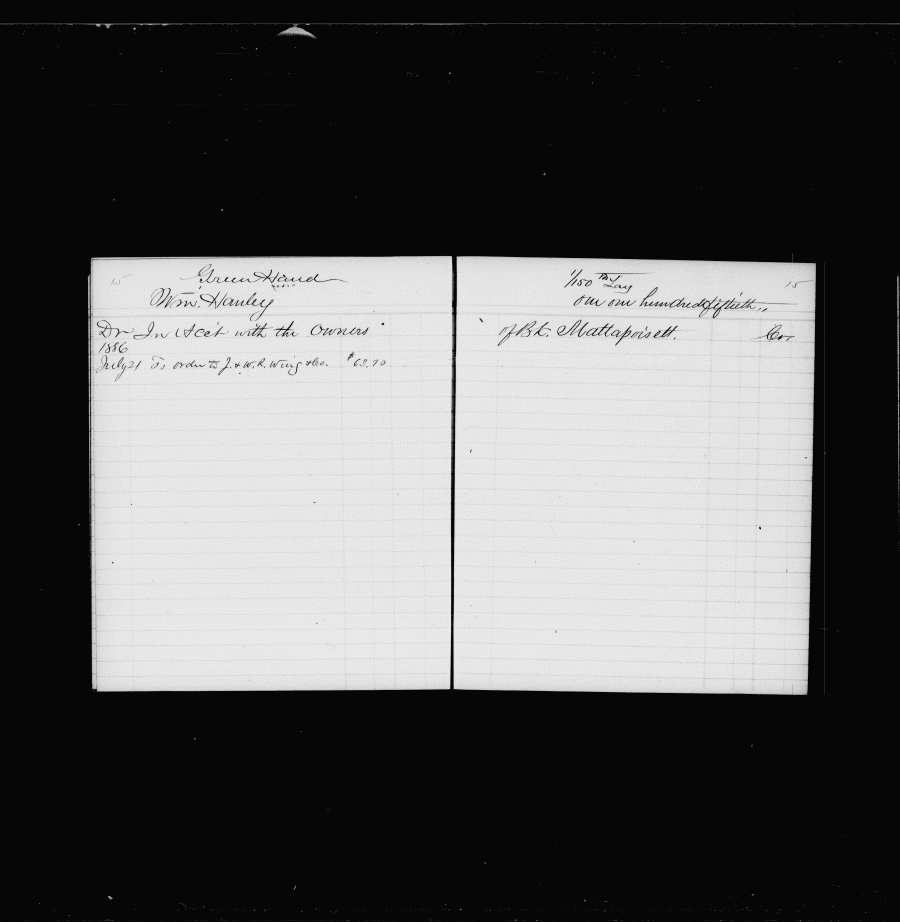 15
Green Hand
Wm. Hanley
Dr In Acct with the Owners
1886
July 21 To order to J. & W. R. Wing & Co. $63.70
1/150 th Lay
15
one one hundred fiftieth
of Bk. Mattapoisett.
Cr